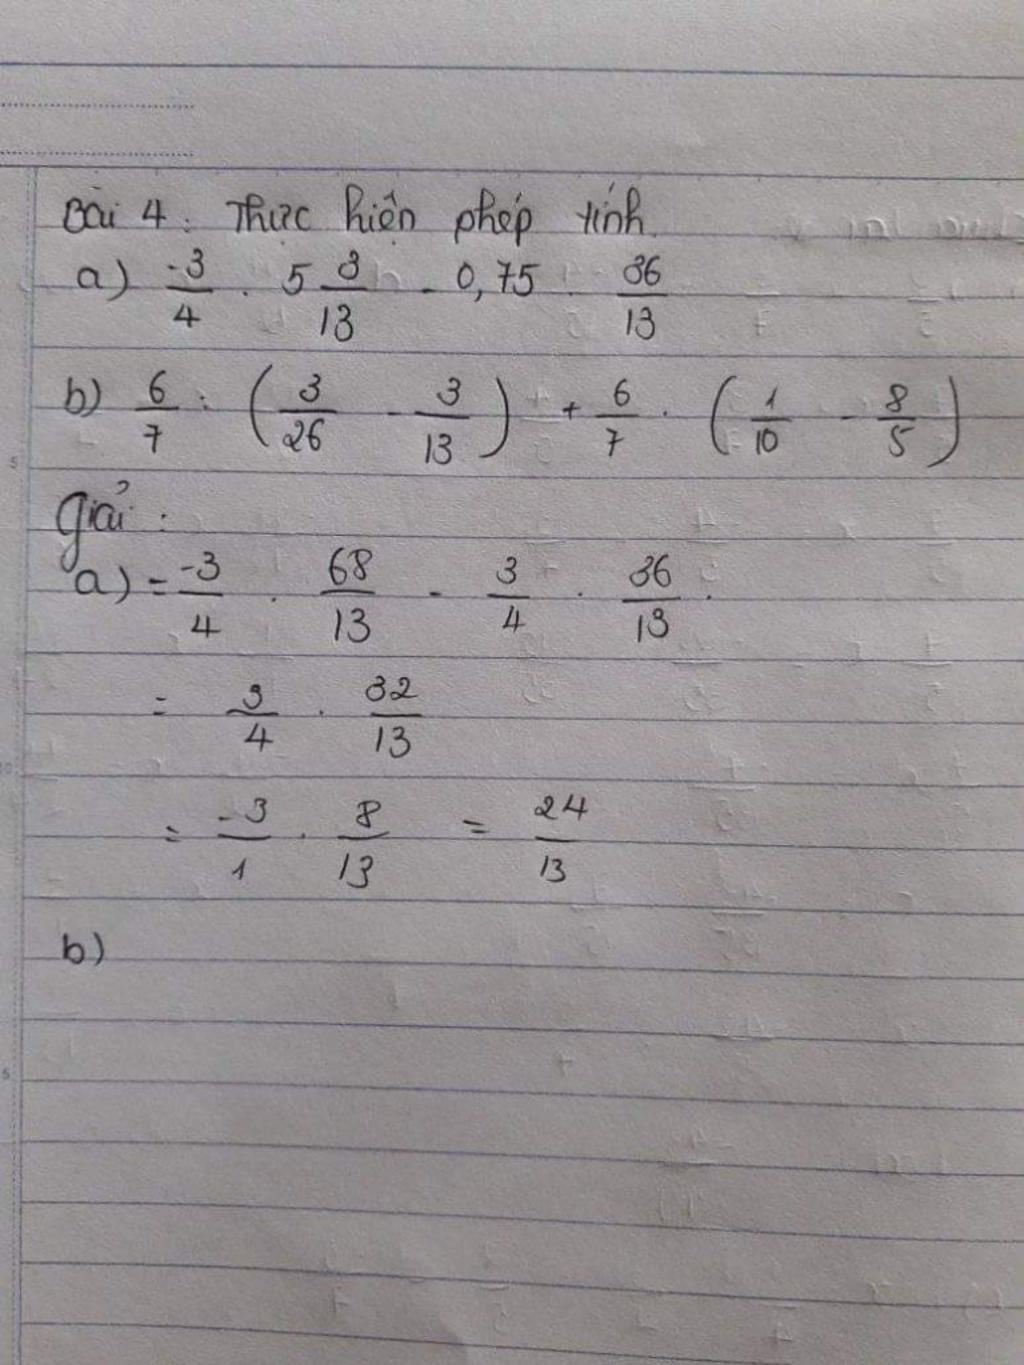 Bài 4: Thực hiện phép tính
a) -3/4 . 5 3/13 - 0,75 . 36/13
b) 6/7 : (3/26 - 3/13) + 6/7 . (1/10 - 8/5)
5
Giải:
a) = -3/4 . 68/13 - 3/4 . 36/13.
= 3/4 . 32/13
10
= -3/1 . 8/13 = 24/13
b)
5